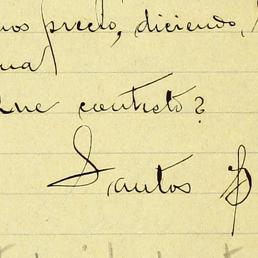 mos precio, diciendo,
ma
que contesto?
Santos